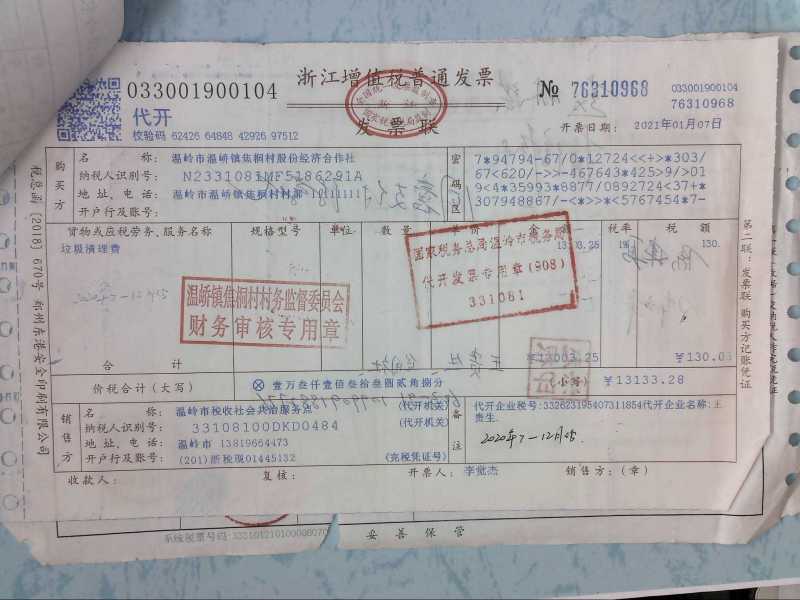 浙江增值税普通发票
033001900104
№ 76310968
033001900104
76310968
代开
发票联
校验码 62426 64848 42926 97512
开票日期: 2021年01月07日
购买方
名 称: 温岭市温峤镇焦桐村股份经济合作社
纳税人识别号: N2331081MF5186291A
地址、电话: 温岭市温峤镇焦桐村村部 11111111
开户行及账号:
密码区
7*94794-67/0*12724<<+>*303/
67<620/->>-467643*425>9/>01
09<4*35993*8877/0892724<37+*
307948867/-<*>>*<5767454*7-
货物或应税劳务、服务名称 规格型号 单位 数量 单价 金额 税率 税额
垃圾清理费 1% 130.
2020年7-12月份
国家税务总局温岭市税务局
代开发票专用章(908)
331081
温峤镇焦桐村村务监督委员会
财务审核专用章
合 计 ¥13003.25 ¥130.03
价税合计(大写) ⊗ 壹万叁仟壹佰叁拾叁圆贰角捌分 (小写) ¥13133.28
销售方
名 称: 温岭市税收社会共治服务站 (代开机关)
纳税人识别号: 33108100DKD0484 (代开机关)
地址、电话: 温岭市 13819664473
开户行及账号: (201)浙税现01445132 (完税凭证号)
备注
代开企业税号:332623195407311854代开企业名称:王
贵生.
2020年7-12月份
收款人: 复核: 开票人: 李觉杰 销售方:(章)
税总函[2018]670号 郑州东港安全印制有限公司
第二联:发票联 购买方记账凭证
系统税票号码:333101210100006070
妥善保管